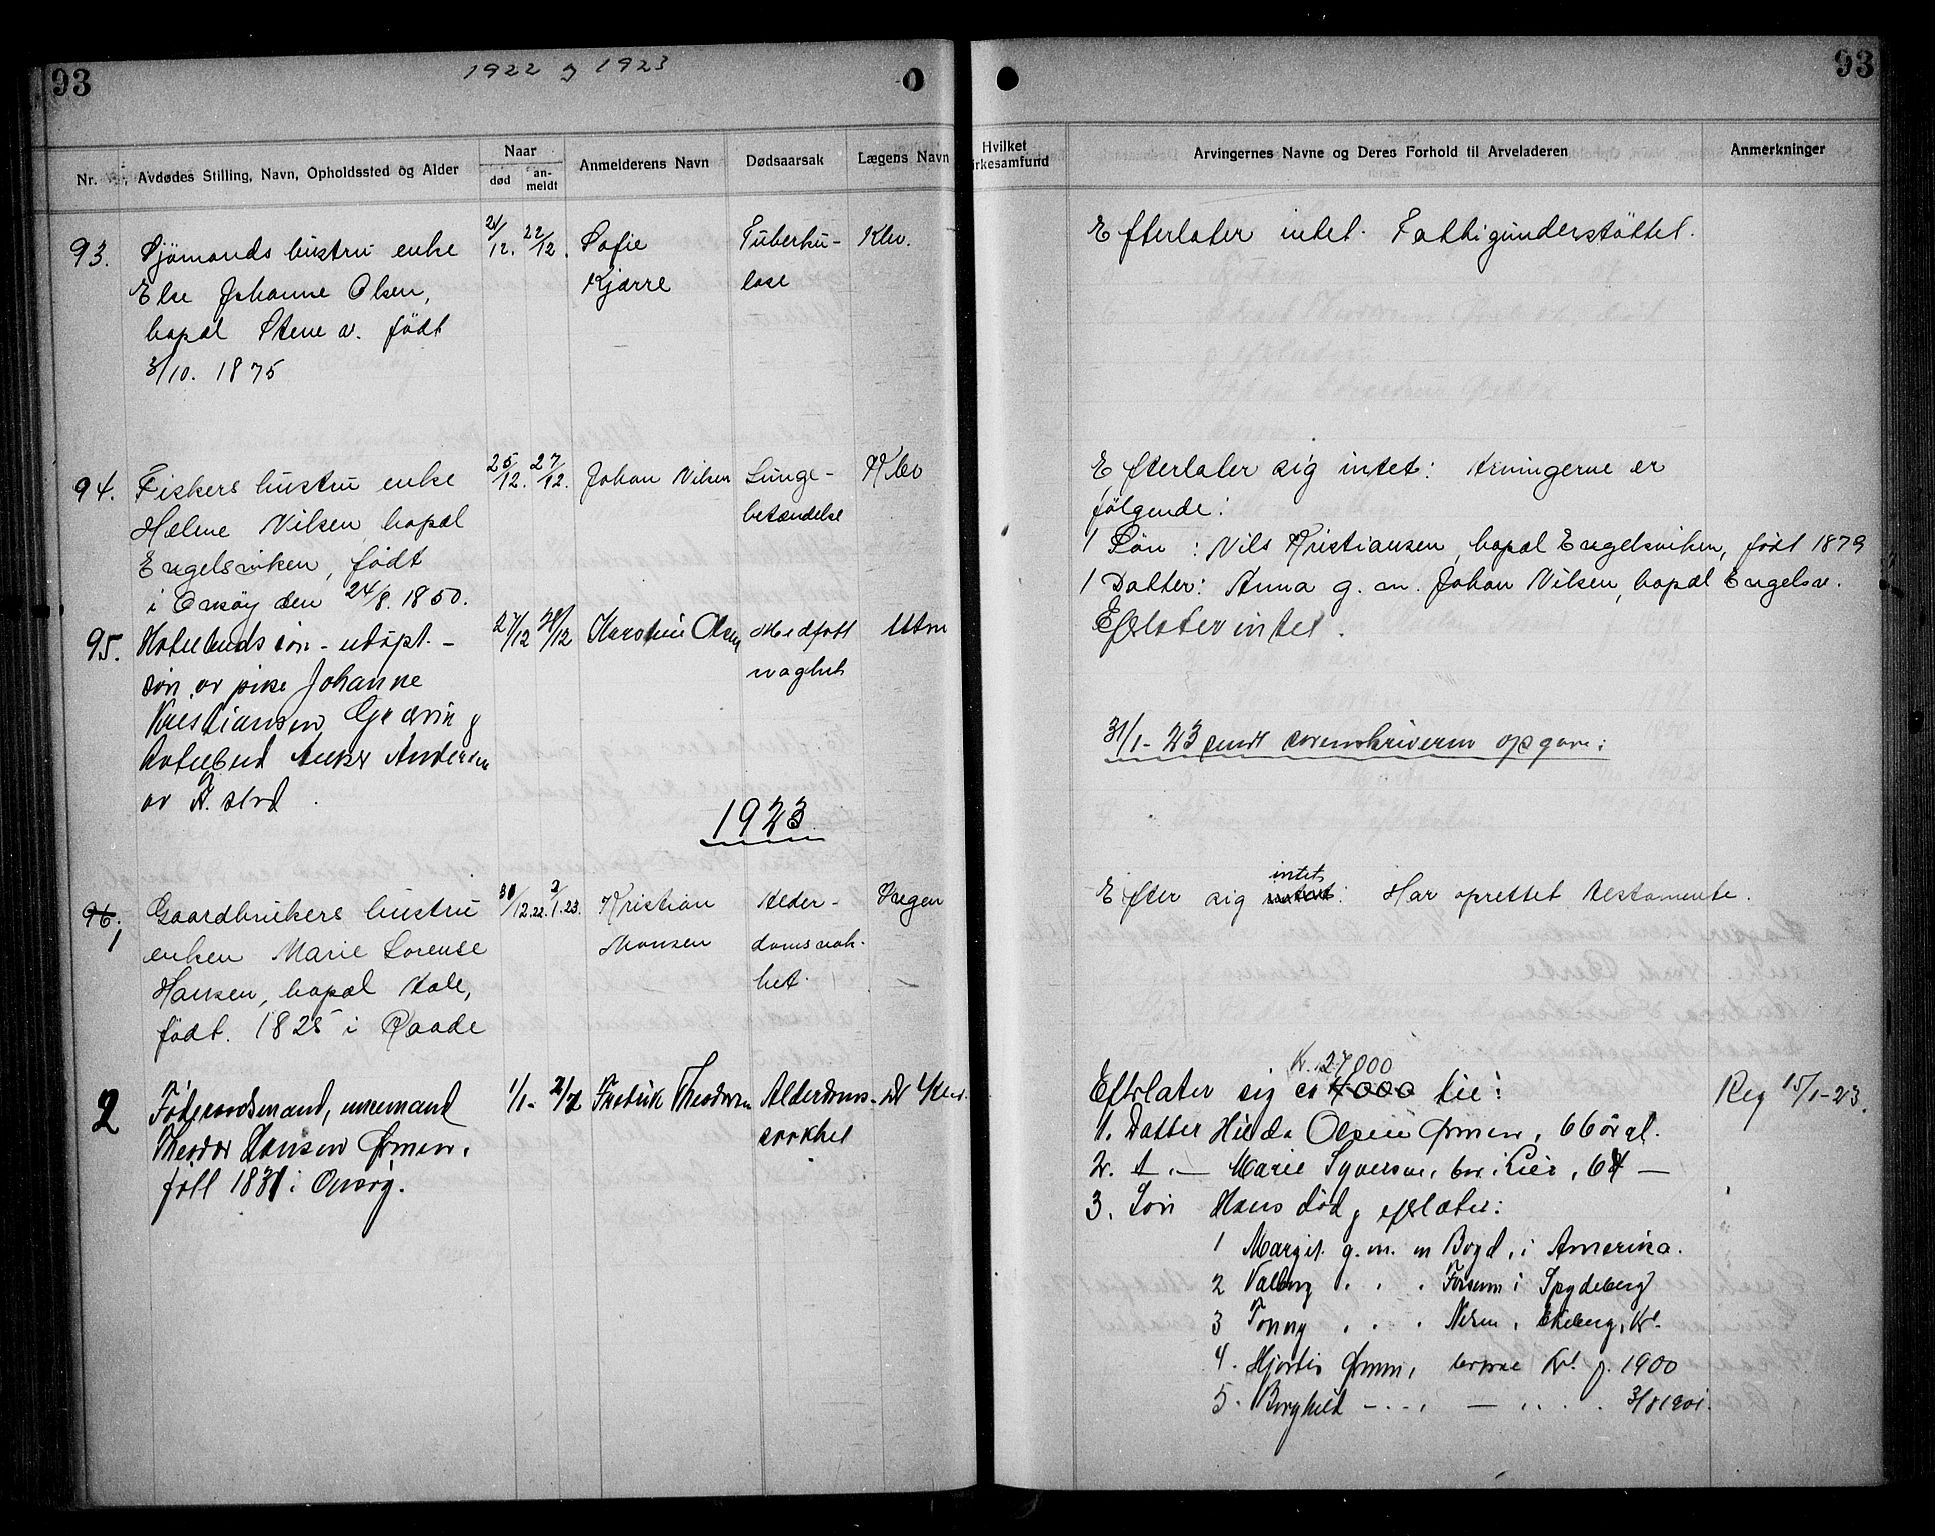 93
1922 og 1923
93
Nr.
Avdødes Stilling, Navn, Opholdssted og Alder
Naar
død
an-
meldt
Anmelderens Navn
Dødsaarsak
Lægens Navn
Hvilket
irkesamfund
Arvingernes Navne og Deres Forhold til Arveladeren
Anmerkninger
93. Sjømands hustru enke
Else Johanne Olsen,
bopæl Stene v. født
3/10. 1875
21/12. 22/12.
Sofie
Kjærre
Tuberku-
lose
Klev.
Efterlater intet. Fattigunderstøttet.
94. Fiskers hustru enke
Helene Nilsen, bopæl
Engelsviken, født
i Onsøy den 24/8. 1850.
25/12. 27/12.
Johan Nilsen
Lunge-
betændelse
Klev
Efterlater sig intet: Arvingerne er
følgende:
1 Søn : Nils Kristiansen, bopæl Engelsviken, født 1879
1 Datter: Anna g. m. Johan Nilsen, bopæl Engelsv.
95. Hotelbuds søn - udøpt -
søn av pike Johanne
Kristiansen
Hotelbud Anker Andersen
av Fr.stad.
27/12 28/12
Olsen
Medføtt
svaghet
Efterlater intet.
31/1-23 sendt sorenskriveren opgave:
1923
96.
1
Gaardbrukers hustru
enken Marie Lorense
Hansen, bopæl Hale,
født. 1825 i Raade
30/12.22. 2/1.23.
Kristian
Monsen
Alder-
domsvak-
het.
Ingen
Efter sig intet: Har oprettet testamente.
2
Føderaadsmand, enkemand
Theodor Hansen Ørmen,
født 1831 i Onsøy.
1/1- 2/1
Fredrik Theodorsen
Alderdoms-
svakhet
Dr Klev.
Kr. 27000
Efterlater sig ca 4000 lie:
1. Datter Hilda Olsen Ørmen, 66 år gl.
2. d. — Marie Syversen, bor i Lier, 64 —
3. Søn Hans død, efterlater:
1 Margit g. m. en Boyd, i Amerika.
2 Valborg . . . Forsum i Spydeberg
3 Fanny . . . Ekeberg, Kr.
4. Hjørdis Ørmen, Kr. f. 1900
5. Borghild — . . , — . . . 3/8 1901.
Reg 15/1-23.